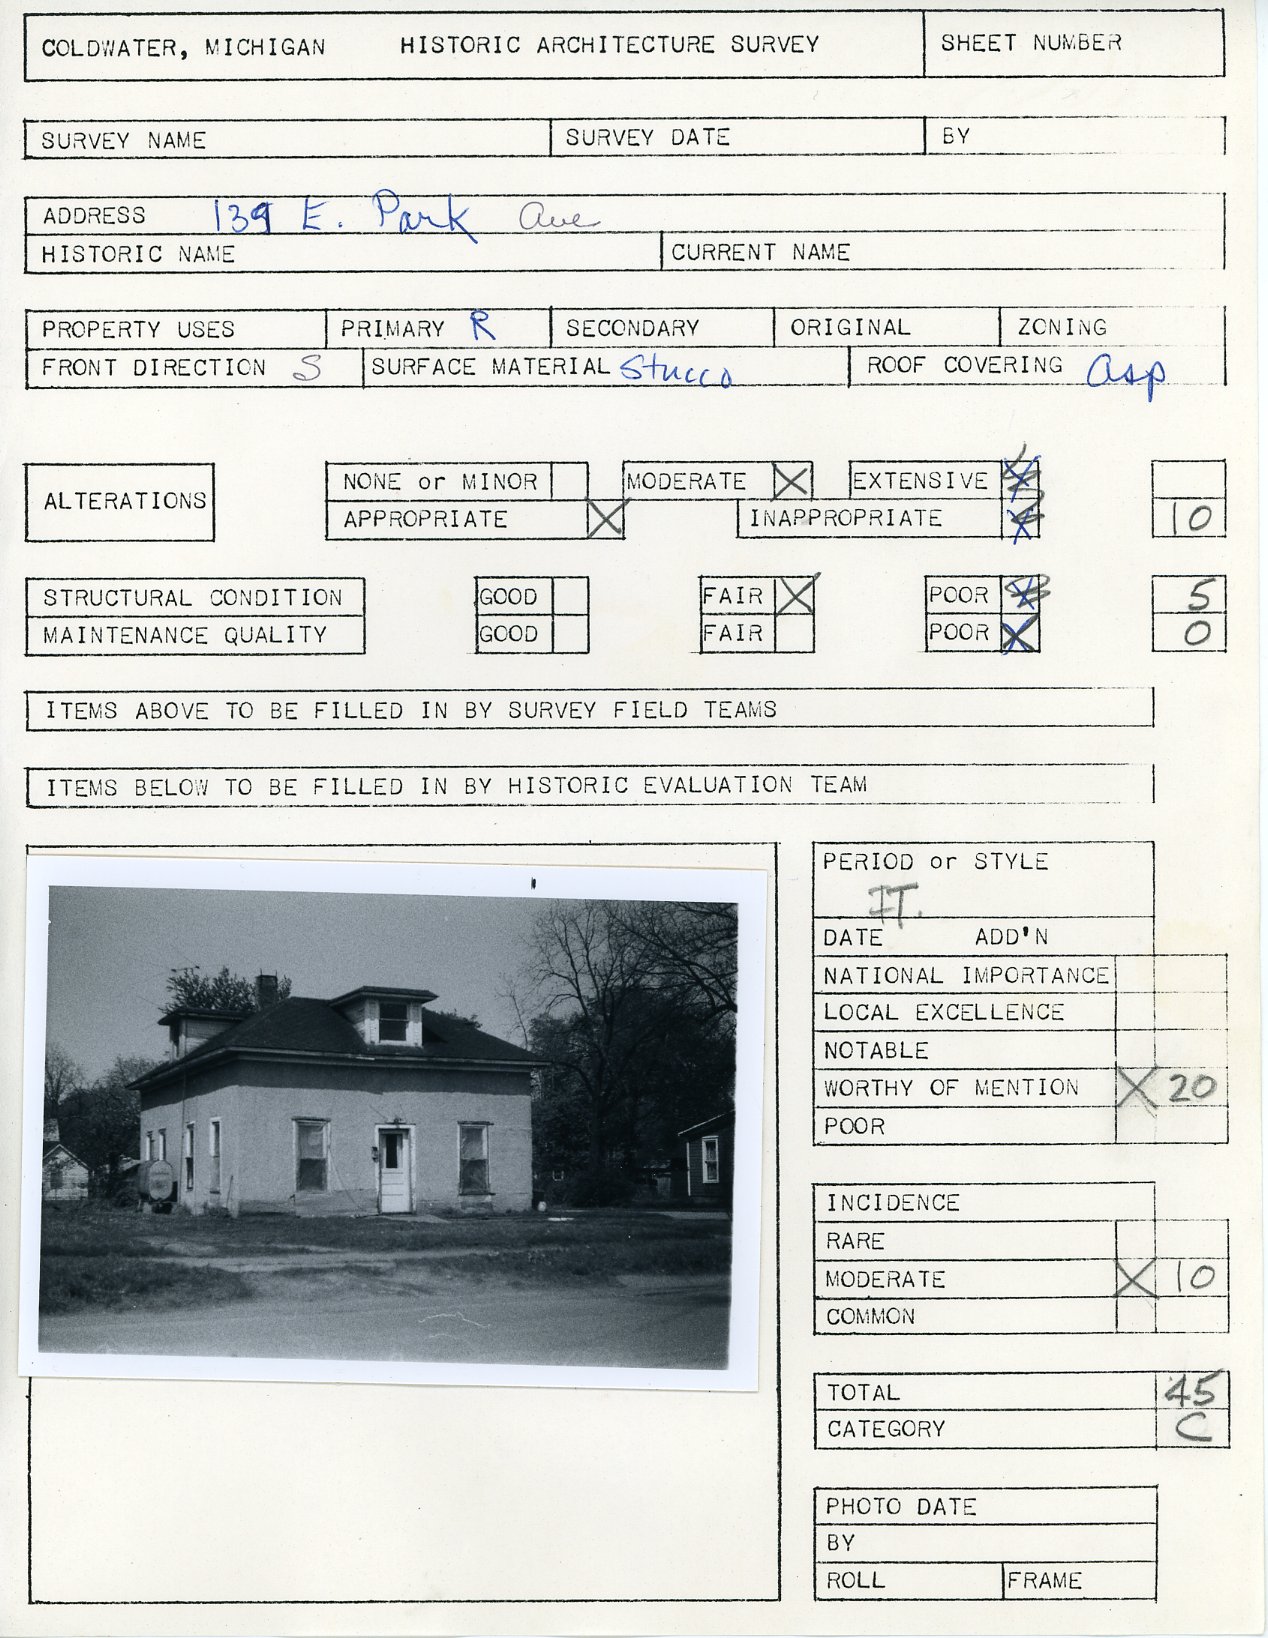 COLDWATER, MICHIGAN HISTORIC ARCHITECTURE SURVEY SHEET NUMBER
SURVEY NAME SURVEY DATE BY
ADDRESS 139 E. Park Ave
HISTORIC NAME CURRENT NAME
PROPERTY USES PRIMARY R SECONDARY ORIGINAL ZONING
FRONT DIRECTION S SURFACE MATERIAL Stucco ROOF COVERING Asp
ALTERATIONS
NONE or MINOR MODERATE X EXTENSIVE X
APPROPRIATE X INAPPROPRIATE X 10
STRUCTURAL CONDITION GOOD FAIR X POOR X 5
MAINTENANCE QUALITY GOOD FAIR POOR X 0
ITEMS ABOVE TO BE FILLED IN BY SURVEY FIELD TEAMS
ITEMS BELOW TO BE FILLED IN BY HISTORIC EVALUATION TEAM
PERIOD or STYLE
IT.
DATE ADD'N
NATIONAL IMPORTANCE
LOCAL EXCELLENCE
NOTABLE
WORTHY OF MENTION X 20
POOR
INCIDENCE
RARE
MODERATE X 10
COMMON
TOTAL 45
CATEGORY C
PHOTO DATE
BY
ROLL FRAME